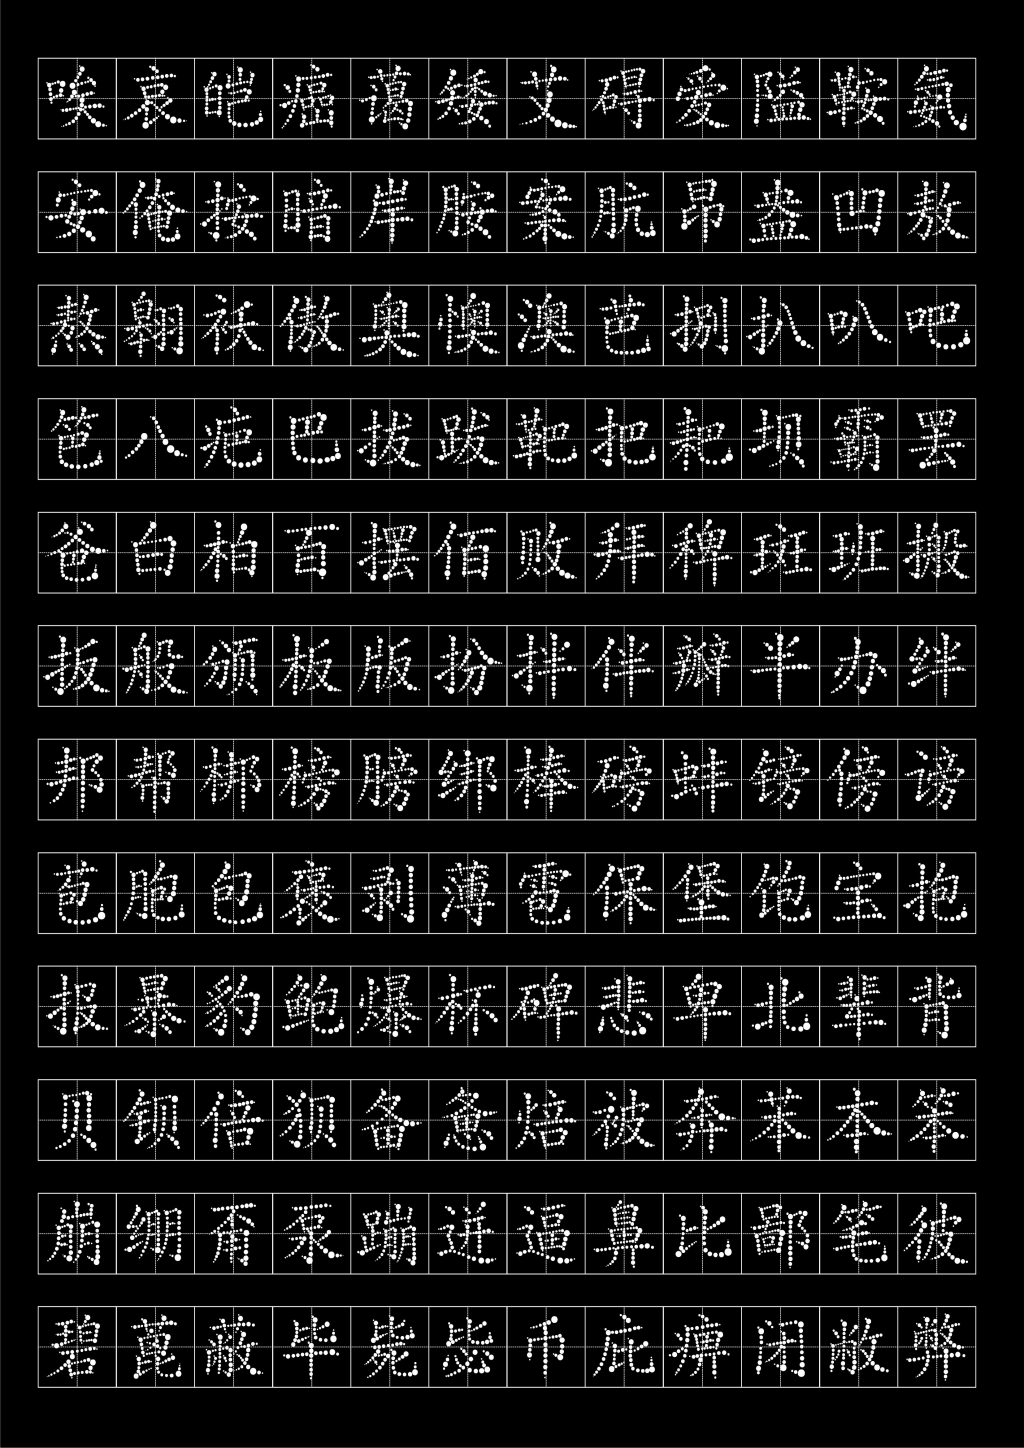 唉哀皑癌蔼矮艾碍爱隘鞍氨
安俺按暗岸胺案肮昂盎凹敖
熬翱袄傲奥懊澳芭捌扒叭吧
笆八疤巴拔跋靶把耙坝霸罢
爸白柏百摆佰败拜稗斑班搬
扳般颁板版扮拌伴瓣半办绊
邦帮梆榜膀绑棒磅蚌镑傍谤
苞胞包褒剥薄雹保堡饱宝抱
报暴豹鲍爆杯碑悲卑北辈背
贝钡倍狈备惫焙被奔苯本笨
崩绷甭泵蹦迸逼鼻比鄙笔彼
碧蓖蔽毕毙毖币庇痹闭敝弊